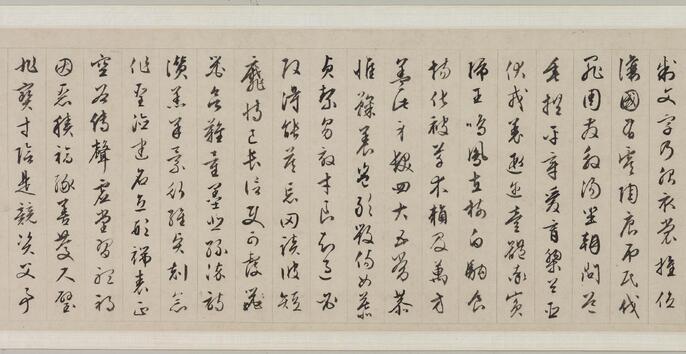 制文字乃服衣裳推位
讓國有虞陶唐弔民伐
罪周發殷湯坐朝問道
垂拱平章愛育黎首臣
伏戎羌遐邇壹體率賓
歸王鳴鳳在樹白駒食
場化被草木賴及萬方
蓋此身髮四大五常恭
惟鞠養豈敢毀傷女慕
貞潔男效才良知過必
改得能莫忘罔談彼短
靡恃己長信使可覆器
欲難量墨悲絲染詩
讚羔羊景行維賢剋念
作聖德建名立形端表正
空谷傳聲虛堂習聽禍
因惡積福緣善慶尺璧
非寶寸陰是競資父事